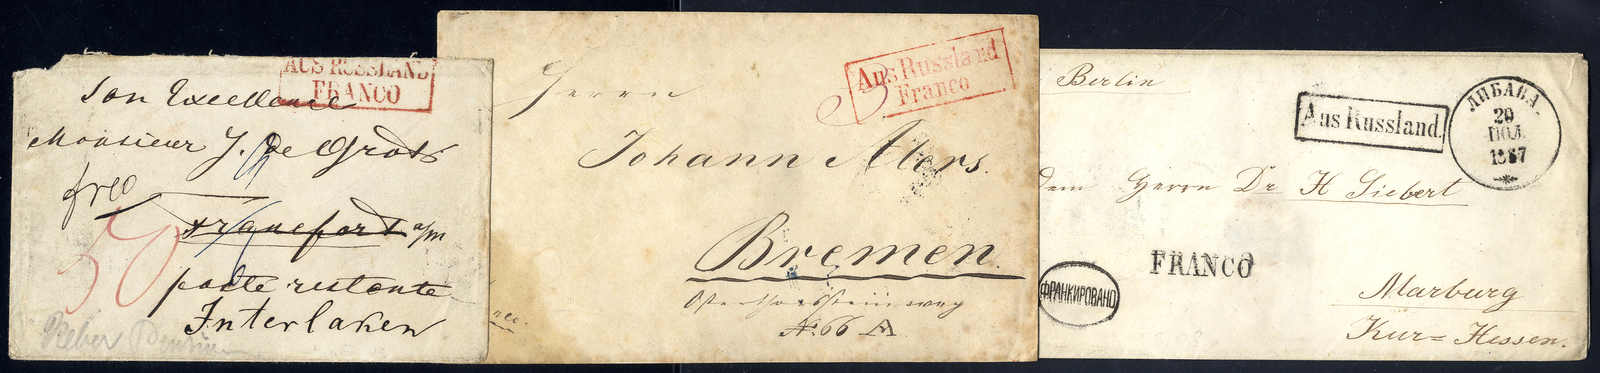 AUS RUSSLAND
FRANCO
Son Excellence
Monsieur J. de Grote
free
50
Francfort a/m
poste restante
Interlaken
Aus Russland
Franco
Herrn
Johann Alers.
Bremen.
No. 66 A
Berlin
Aus Russland.
ЛИБАВА.
20
ІЮЛ.
1867
dem Herrn Dr H Siebert
FRANCO
ФРАНКИРОВАНО
Marburg
Kur=Hessen.